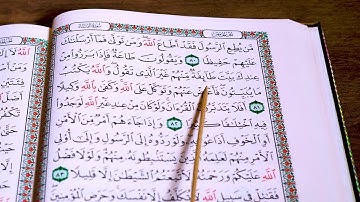 مَّن يُطِعِ ٱلرَّسُولَ فَقَدْ أَطَاعَ ٱللَّهَ وَمَن تَوَلَّىٰ فَمَآ أَرْسَلْنَٰكَ
عَلَيْهِمْ حَفِيظًا ٨٠ وَيَقُولُونَ طَاعَةٌ فَإِذَا بَرَزُوا۟ مِنْ
عِندِكَ بَيَّتَ طَآئِفَةٌ مِّنْهُمْ غَيْرَ ٱلَّذِى تَقُولُ وَٱللَّهُ يَكْتُبُ
مَا يُبَيِّتُونَ فَأَعْرِضْ عَنْهُمْ وَتَوَكَّلْ عَلَى ٱللَّهِ وَكَفَىٰ بِٱللَّهِ وَكِيلًا
٨١ أَفَلَا يَتَدَبَّرُونَ ٱلْقُرْءَانَ وَلَوْ كَانَ مِنْ عِندِ غَيْرِ ٱللَّهِ لَوَجَدُوا۟
فِيهِ ٱخْتِلَٰفًا كَثِيرًا ٨٢ وَإِذَا جَآءَهُمْ أَمْرٌ مِّنَ
ٱلْأَمْنِ أَوِ ٱلْخَوْفِ أَذَاعُوا۟ بِهِۦ وَلَوْ رَدُّوهُ إِلَى ٱلرَّسُولِ وَإِلَىٰٓ أُو۟لِى
ٱلْأَمْرِ مِنْهُمْ لَعَلِمَهُ ٱلَّذِينَ يَسْتَنۢبِطُونَهُۥ مِنْهُمْ وَلَوْلَا فَضْلُ
ٱللَّهِ عَلَيْكُمْ وَرَحْمَتُهُۥ لَٱتَّبَعْتُمُ ٱلشَّيْطَٰنَ إِلَّا قَلِيلًا ٨٣
فَقَٰتِلْ فِى سَبِيلِ ٱللَّهِ لَا تُكَلَّفُ إِلَّا نَفْسَكَ وَحَرِّضِ ٱلْمُؤْمِنِينَ